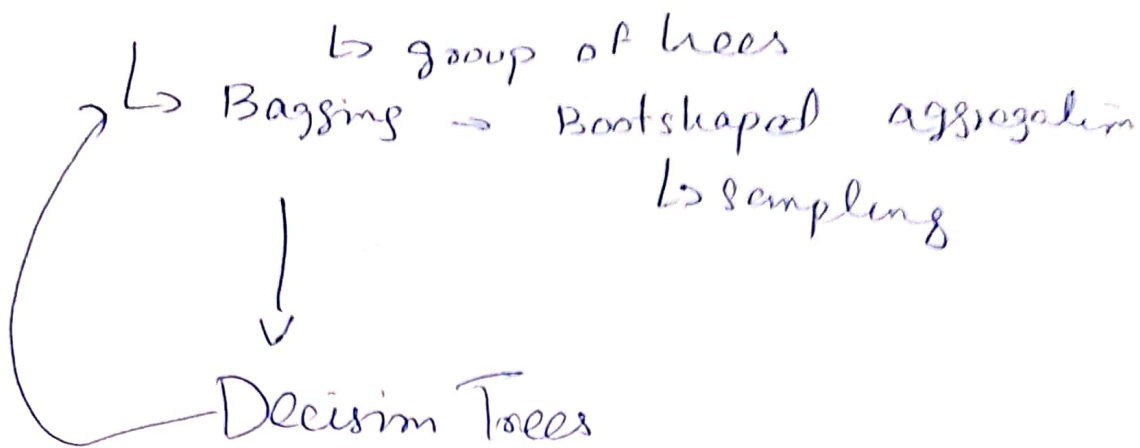 ↳ group of trees
↳ Bagging → Bootstraped aggregation
↳ sampling
Decision Trees